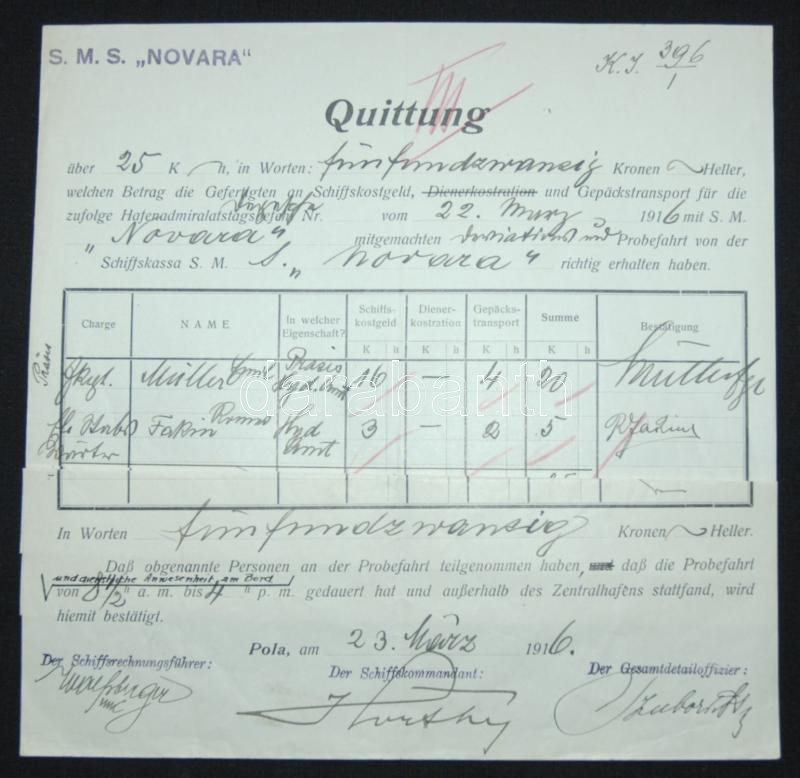 S. M. S. „NOVARA“
K.J. 396/1
III
Quittung
über 25 K h, in Worten: fünfundzwanzig Kronen Heller,
welchen Betrag die Gefertigten an Schiffskostgeld, Dienerkostration und Gepäckstransport für die
zufolge Hafenadmiralatstagsbefehl Nr. vom 22. März 1916 mit S. M.
„Novara“ mitgemachten Deviations und Probefahrt von der
Schiffskassa S. M. S. „Novara“ richtig erhalten haben.
Charge NAME In welcher Eigenschaft? Schiffs-kostgeld Diener-kostration Gepäcks-transport Summe Bestätigung
K h K h K h K h
Präses
Müller Emil Präsis Hyd. Amt 16 — 4 20 Müller
Fakin Romeo Hyd Amt 3 — 2 5 R Fakin
In Worten fünfundzwanzig Kronen Heller.
Daß obgenannte Personen an der Probefahrt teilgenommen haben, und daß die Probefahrt
und dienstliche Anwesenheit am Bord
von 8 1/2 h a. m. bis 4 h p. m. gedauert hat und außerhalb des Zentralhafens stattfand, wird
hiemit bestätigt.
Pola, am 23. März 1916.
Der Schiffsrechnungsführer: Der Schiffskommandant: Der Gesamtdetailoffizier:
Horthy
darabanth